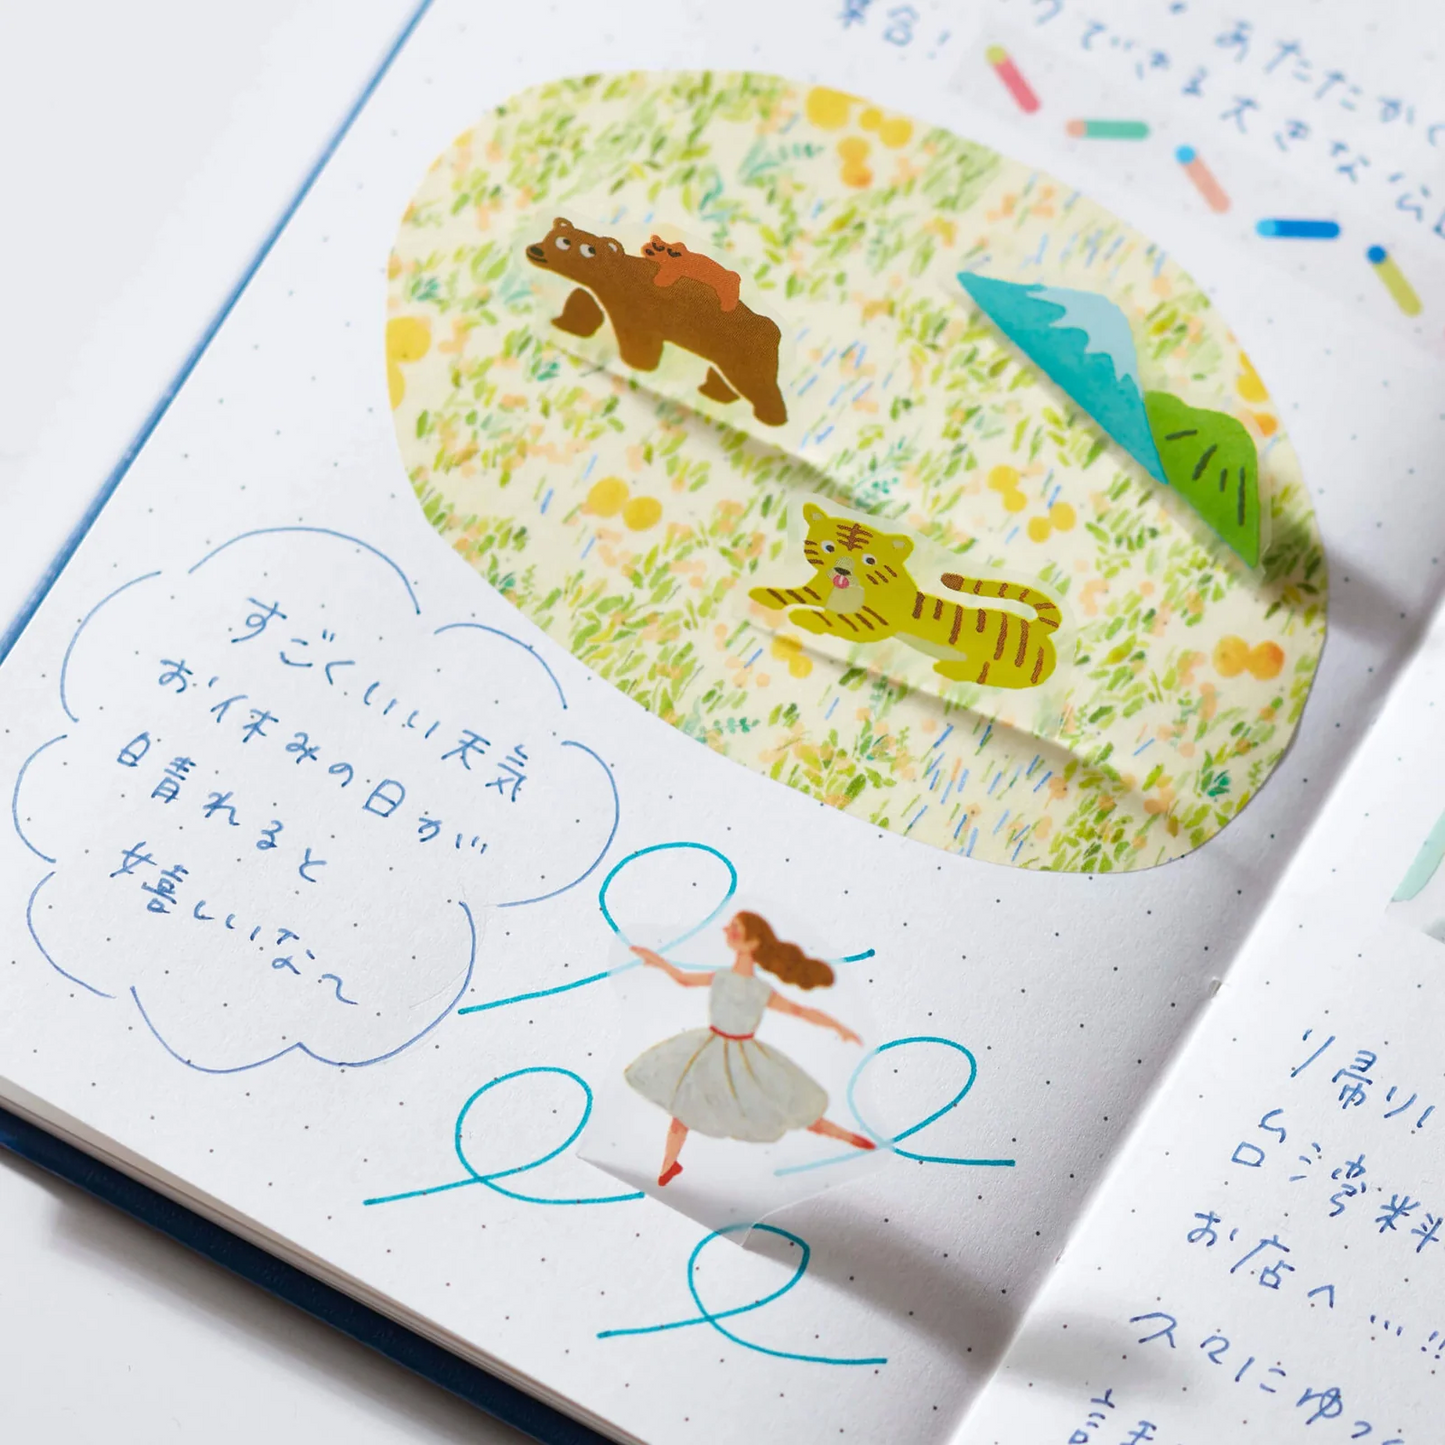 あたたかく
クできる大きな公
集合！
すごくいい天気
お休みの日が
晴れると
嬉しいな〜
帰り
台湾料
お店へ…!!
スマにゆっ